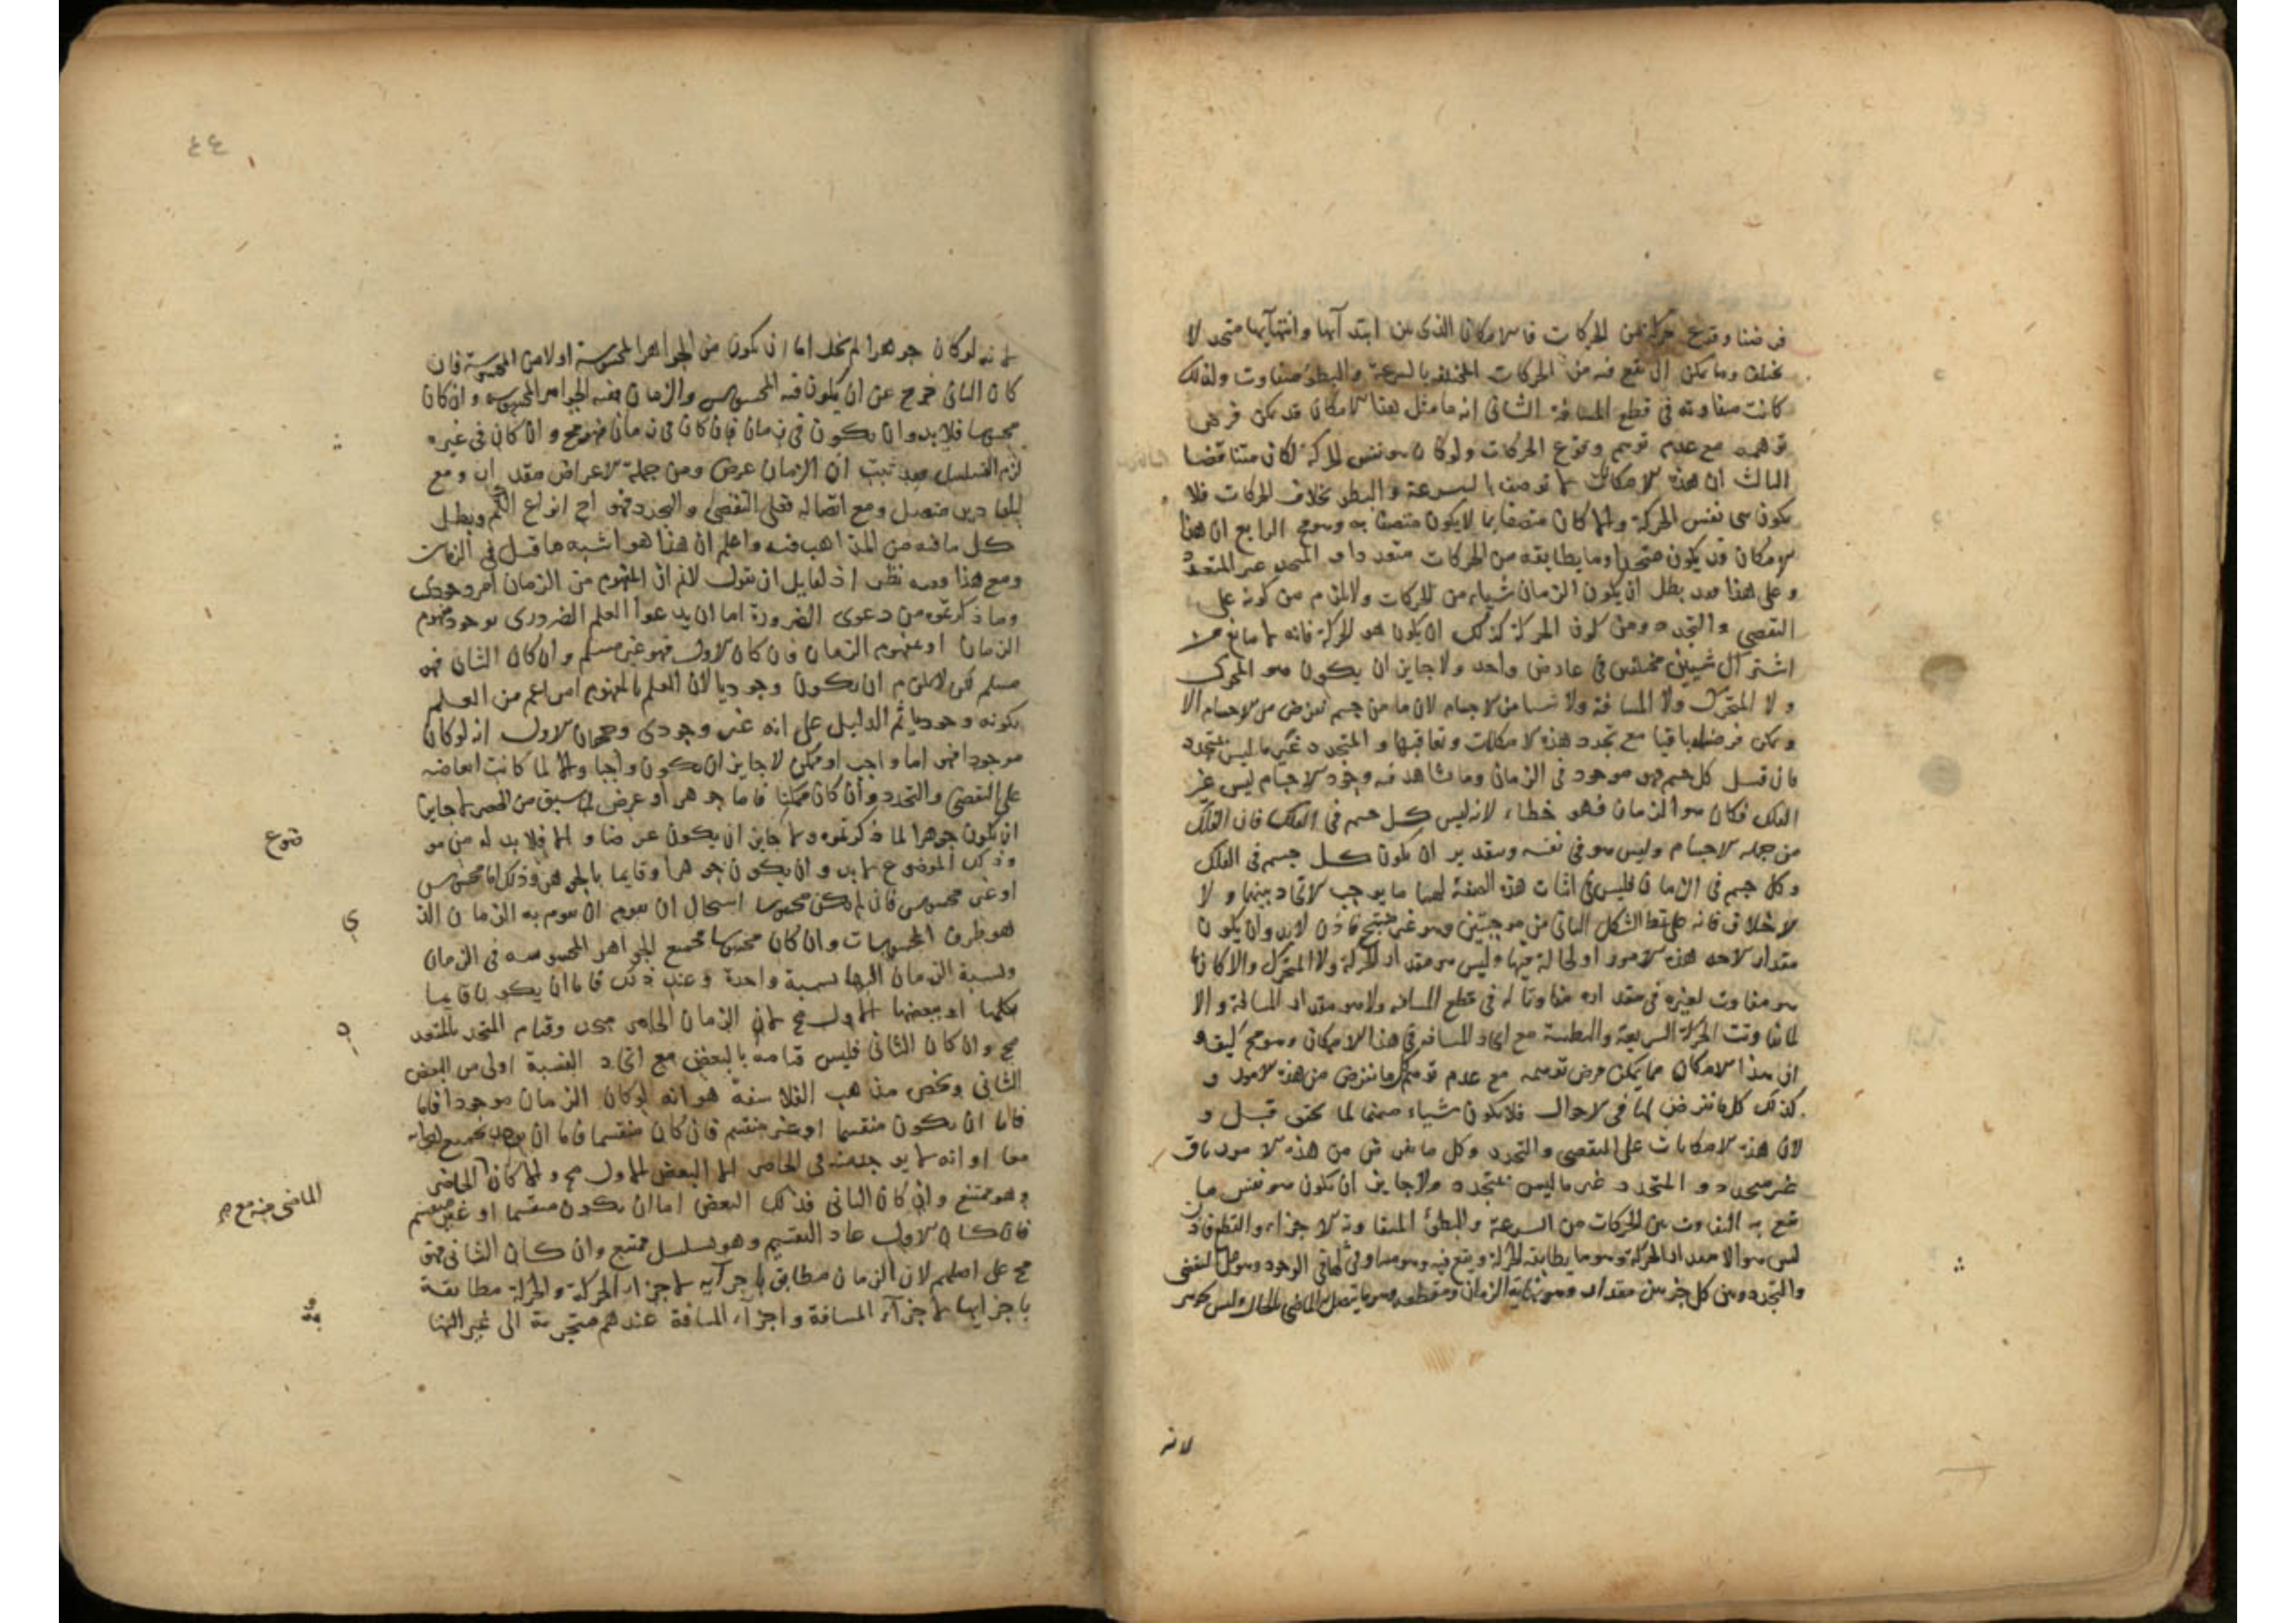 فرضنا وقوع حركة من الحركات فالامكان الذى بين ابتدآئها وانتهآئها متحد لا
يختلف وما يمكن ان يقع فيه من الحركات المختلفة بالسرعة والبطؤ متفاوت ولذلك
كانت متفاوتة فى قطع المسافة الثانى انه ما مثل هذا الامكان قد يمكن فرض
توهمه مع عدم توهم وقوع الحركات ولو كان هو نفس الحركة لكان متناقضا
الثالث ان هذه الامكانات لا توصف بالسرعة والبطو بخلاف الحركات فلا
يكون هى نفس الحركة والا لما كان متصفا بما لا يكون متصفا به وهو مح الرابع ان هذا
الامكان قد يكون متحدا وما يطابقه من الحركات متعددا والمتحد غير المتعدد
وعلى هذا فقد بطل ان يكون الزمان شياء من الحركات ولا يلزم من كونه على
التقضى والتجدد ومن كون الحركة كذلك ان يكون هو الحركة فانه لا مانع من
اشتراك شيئين مختلفين فى عارض واحد ولا جايز ان يكون هو المحرك
ولا المتحرك ولا المسافة ولا شيا من الاجسام لان ما من جسم يفرض من الاجسام الا
ويمكن فرضه باقيا مع تجدد هذه الامكانات وتعاقبها والمتجدد غير ما ليس بمتجدد
فان قيل كل جسم فهو موجود فى الزمان وما نشاهد فيه وجود الاجسام ليس غير
الفلك فكان هو الزمان فهو خطاء لانه ليس كل جسم فى الفلك فان الفلك
من جملة الاجسام وليس هو فى نفسه وبتقدير ان يكون كل جسم فى الفلك
وكل جسم فى الزمان فليس فى اثبات هذه الصفة لهما ما يوجب الاتحاد بينهما ولا
الاختلاف فانه على نمط الشكل الثانى من موجبتين وهو غير منتج فاذن لابد وان يكون
مقدار لاحد هذه الامور او لحالة فيها وليس هو مقدار للحركة ولا المتحرك والا كان ما
هو متفاوت لغيره فى مقداره متفاوتا له فى قطع المسافة ولا هو مقدار المسافة والا
لما تفاوتت الحركة السريعة والبطيئة مع اتحاد المسافة فى هذا الامكان وهو مح كيف و
ان هذا الامكان مما يمكن فرض توهمه مع عدم توهم كل ما نفرض من هذه الامور و
كذلك كل ما نفرض لها فى الاحوال فلا يكون شياء منها لما تحقق قبل و
لان هذه الامكانات على التقضى والتجدد وكل ما نفرض من هذه الامور باق
غير متجدد والمتجدد غير ما ليس بمتجدد ولا جايز ان يكون هو نفس ما
يقع به التفاوت بين الحركات من السرعة والبطئ
ليس هو الا مقدار الحركة وهو ما يطابقه الحركة ويقع فيه
والتجدد وبين كل جزئين مقدار وهو نهاية الزمان ومقطعه وبه يتصل الماضى بالحال وليس بجوهر
لانه
٤٤
لانه لو كان جوهرا لم يخل اما ان يكون من الجواهر المحسوسة او لا من المحسوسة فان
كان الثانى خرج عن ان يكون فيه المحسوس والزمان ففيه الجواهر المحسوسه وان كان
محسوسا فلا بد وان يكون فى زمان فان كان فى زمان فهو مح وان كان فى غيره
لزم التسلسل فقد ثبت ان الزمان عرض ومن جملة الاعراض مقدار ومع
المقادير متصل ومع اتصاله فعلى التقضى والتجدد فهو احد انواع الكم وبطل
كل ما فيه من المذاهب فيه واعلم ان هذا هو اشبه ما قيل فى الزمان
ومع هذا ففيه نظر اذ لقايل ان يقول لانم ان المفهوم من الزمان امر وجودى
وما ذكرتموه من دعوى الضرورة اما ان يدعوا العلم الضرورى بوجود مفهوم
الزمان او بمفهوم الزمان فان كان الاول فهو غير مسلم وان كان الثانى فهو
مسلم لكن لا يلزم ان يكون وجوديا لان العلم بالمفهوم امر اعم من العلم
بكونه وجوديا ثم الدليل على انه غير وجودى وجهان الاول انه لو كان
موجودا فهو اما واجب او ممكن لا جايز ان يكون واجبا والا لما كانت ابعاضه
على التقضى والتجدد وان كان ممكنا فاما جوهر او عرض لما سبق من الحصر لا جايز
ان يكون جوهرا لما ذكرتموه ولا جايز ان يكون عرضا والا فلا بد له من مو
ضوع
وذلك الموضوع لا بد وان يكون جوهرا وقايما بالجوهر وذلك اما محسوس
او غير محسوس فان لم يكن محسوسا استحال ان يقوم به الزمان الذ
ى
هو ظرف المحسوسات وان كان محسوسا فجميع الجواهر المحسوسه فى الزمان
ونسبة الزمان اليها نسبة واحدة وعند ذلك فاما ان يكون قايما
بكلها او ببعضها الاول مح لان الزمان الحاضر متحد وقيام المتحد بالمتعد
د
مح وان كان الثانى فليس قيامه بالبعض مع اتحاد النسبة اولى من البعض
الثانى ويخص مذهب الفلاسفة هو انه لو كان الزمان موجودا
فاما ان يكون منقسما او غير منقسم فان كان منقسما فاما ان يوجد بجميع اجزائه
معا او انه لا يوجد منه فى الحاضر الا البعض الاول مح والا كان الحاضر
الماضى منه مع
وهو ممتنع وان كان الثانى فذلك البعض اما ان يكون منقسما او غير منقسم
فان كان الاول عاد التقسيم وهو تسلسل ممتنع وان كان الثانى فهو
مح على اصلهم لان الزمان مطابق باجزآيه لاجزاء الحركة والحركة مطابقة
باجزايها لاجزآء المسافة واجزآء المسافة عندهم متجزية الى غير النها
ية